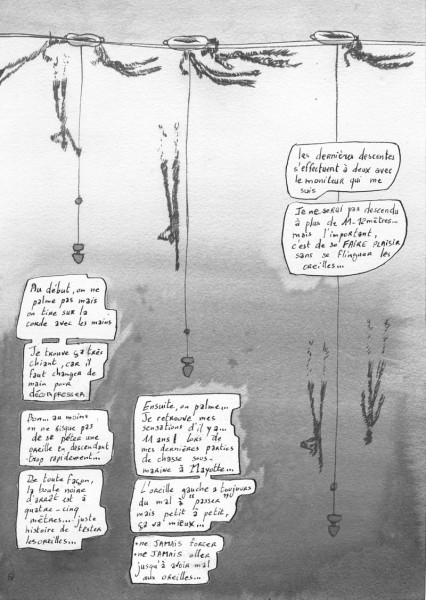 Au début, on ne
palme pas mais
on tire sur la
corde avec les mains
Je trouve ça très
chiant, car il
faut changer de
main pour
décompresser
Bon... au moins
on ne risque pas
de se péter une
oreille en descendant
trop rapidement...
De toute façon,
la toute noire
d'arrêt est à
quatre-cinq
mètres... juste
histoire de tester
les oreilles...
Ensuite, on palme...
Je retrouve mes
sensations d'il y a...
11 ans! lors de
mes dernières parties
de chasse sous-
marine à Mayotte...
L'oreille gauche a toujours
du mal à "passer"
mais petit à petit,
ça va mieux...
•ne JAMAIS forcer
•ne JAMAIS aller
jusqu'à avoir mal
aux oreilles...
les dernières descentes
s'effectuent à deux avec
le moniteur qui me
suis
Je ne serai pas descendu
à plus de 11-12 mètres...
mais l'important,
c'est de se FAIRE PLAISIR
sans se flinguer les
oreilles...